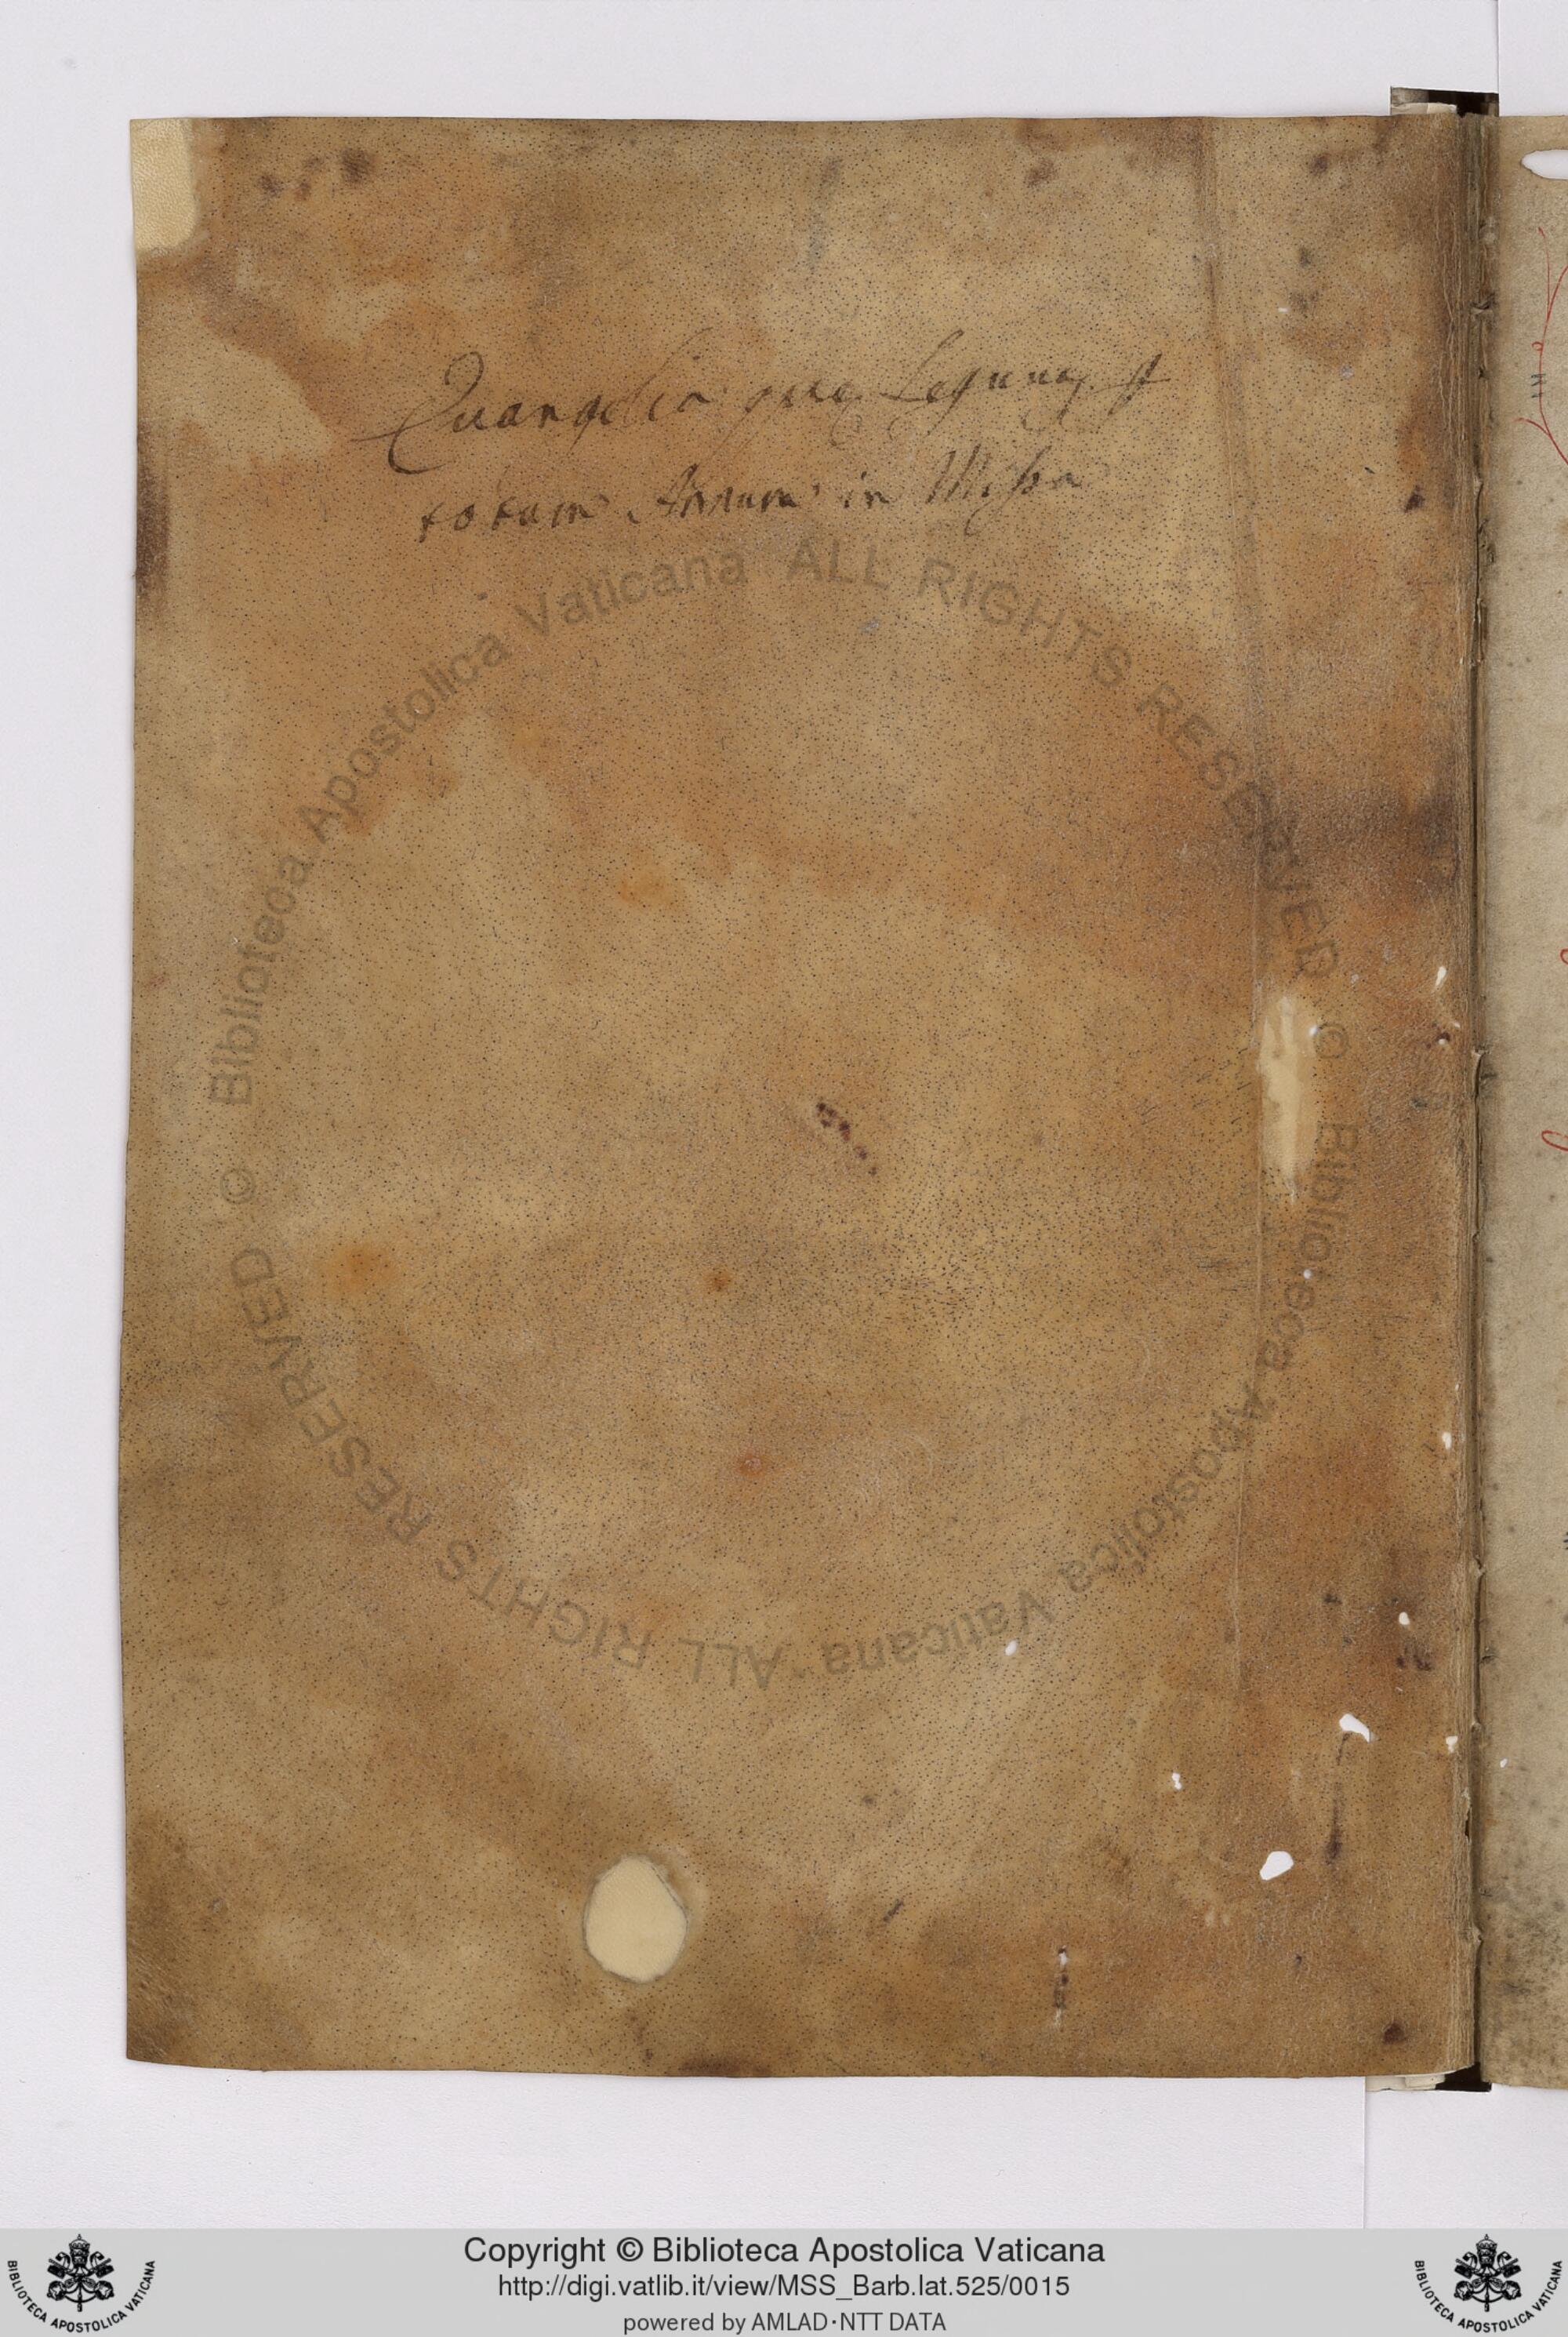 Euangelia quę Legunt. ꝑ
totum Annum in Missa
© Biblioteca Apostolica Vaticana ALL RIGHTS RESERVED
© Biblioteca Apostolica Vaticana ALL RIGHTS RESERVED
Copyright © Biblioteca Apostolica Vaticana
http://digi.vatlib.it/view/MSS_Barb.lat.525/0015
powered by AMLAD·NTT DATA
BIBLIOTECA APOSTOLICA VATICANA
BIBLIOTECA APOSTOLICA VATICANA